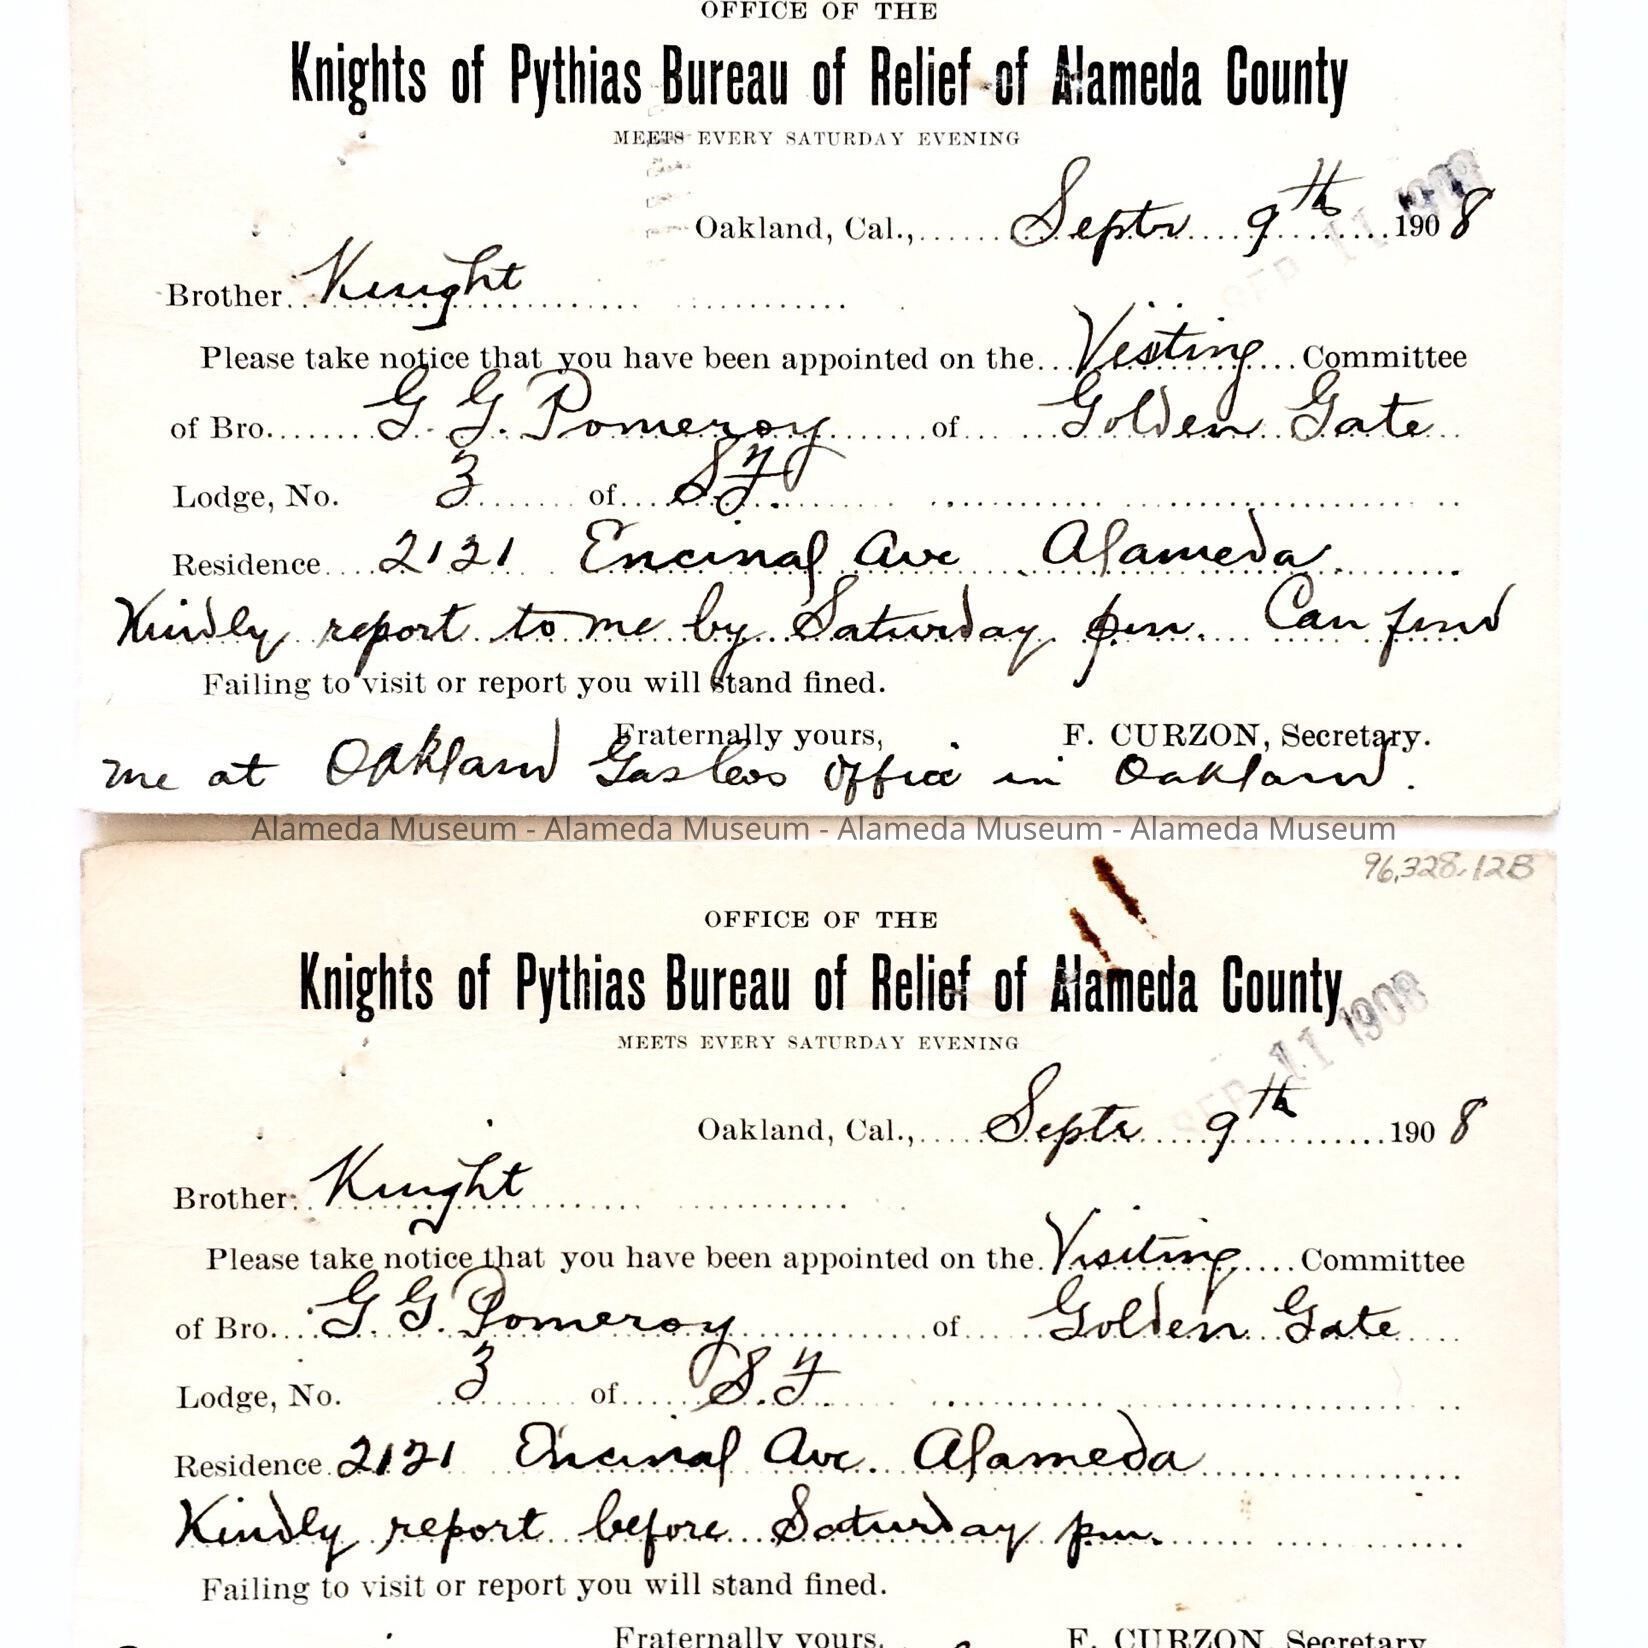 OFFICE OF THE
Knights of Pythias Bureau of Relief of Alameda County
MEETS EVERY SATURDAY EVENING
SEP 11 1908
Oakland, Cal., Septr 9th 1908
Brother Knight
Please take notice that you have been appointed on the Visiting Committee
of Bro. G. G. Pomeroy of Golden Gate
Lodge, No. 3 of S.F.
Residence 2121 Encinal Ave Alameda
Kindly report to me by Saturday pm. Can find
Failing to visit or report you will stand fined.
Fraternally yours, F. CURZON, Secretary.
me at Oakland Office in Oakland.
Alameda Museum - Alameda Museum - Alameda Museum - Alameda Museum
96.328.12B
OFFICE OF THE
Knights of Pythias Bureau of Relief of Alameda County
MEETS EVERY SATURDAY EVENING
SEP 11 1908
Oakland, Cal., Septr 9th 1908
Brother Knight
Please take notice that you have been appointed on the Visiting Committee
of Bro. G. G. Pomeroy of Golden Gate
Lodge, No. 3 of S.F.
Residence 2121 Encinal Ave. Alameda
Kindly report before Saturday pm.
Failing to visit or report you will stand fined.
Fraternally yours, F. CURZON, Secretary.